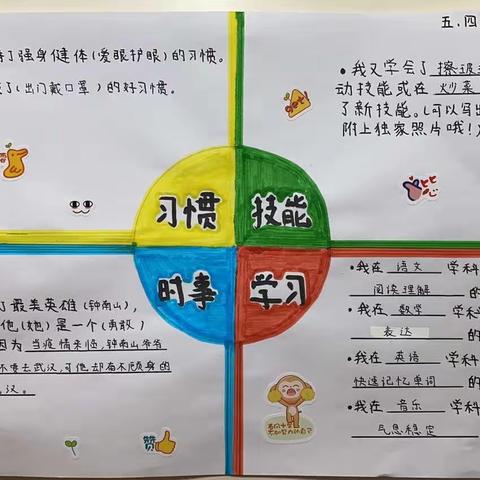 五.四
持了强身健体(爱眼护眼)的习惯。
(出门戴口罩)的好习惯。
•我又学会了擦玻
动技能或在炒菜
了新技能。(可以写出
附上独家照片哦!)
get!
比心
习惯
技能
时事
学习
了最美英雄(钟南山),
他(她)是一个(勇敢)
因为当疫情来临,钟南山爷爷
不要去武汉,可他却奋不顾身的
汉。
赞
•我在语文学科
阅读理解的
•我在数学学科
表达的
•我在英语学科
快速记忆单词的
•我在音乐学科
气息稳定的